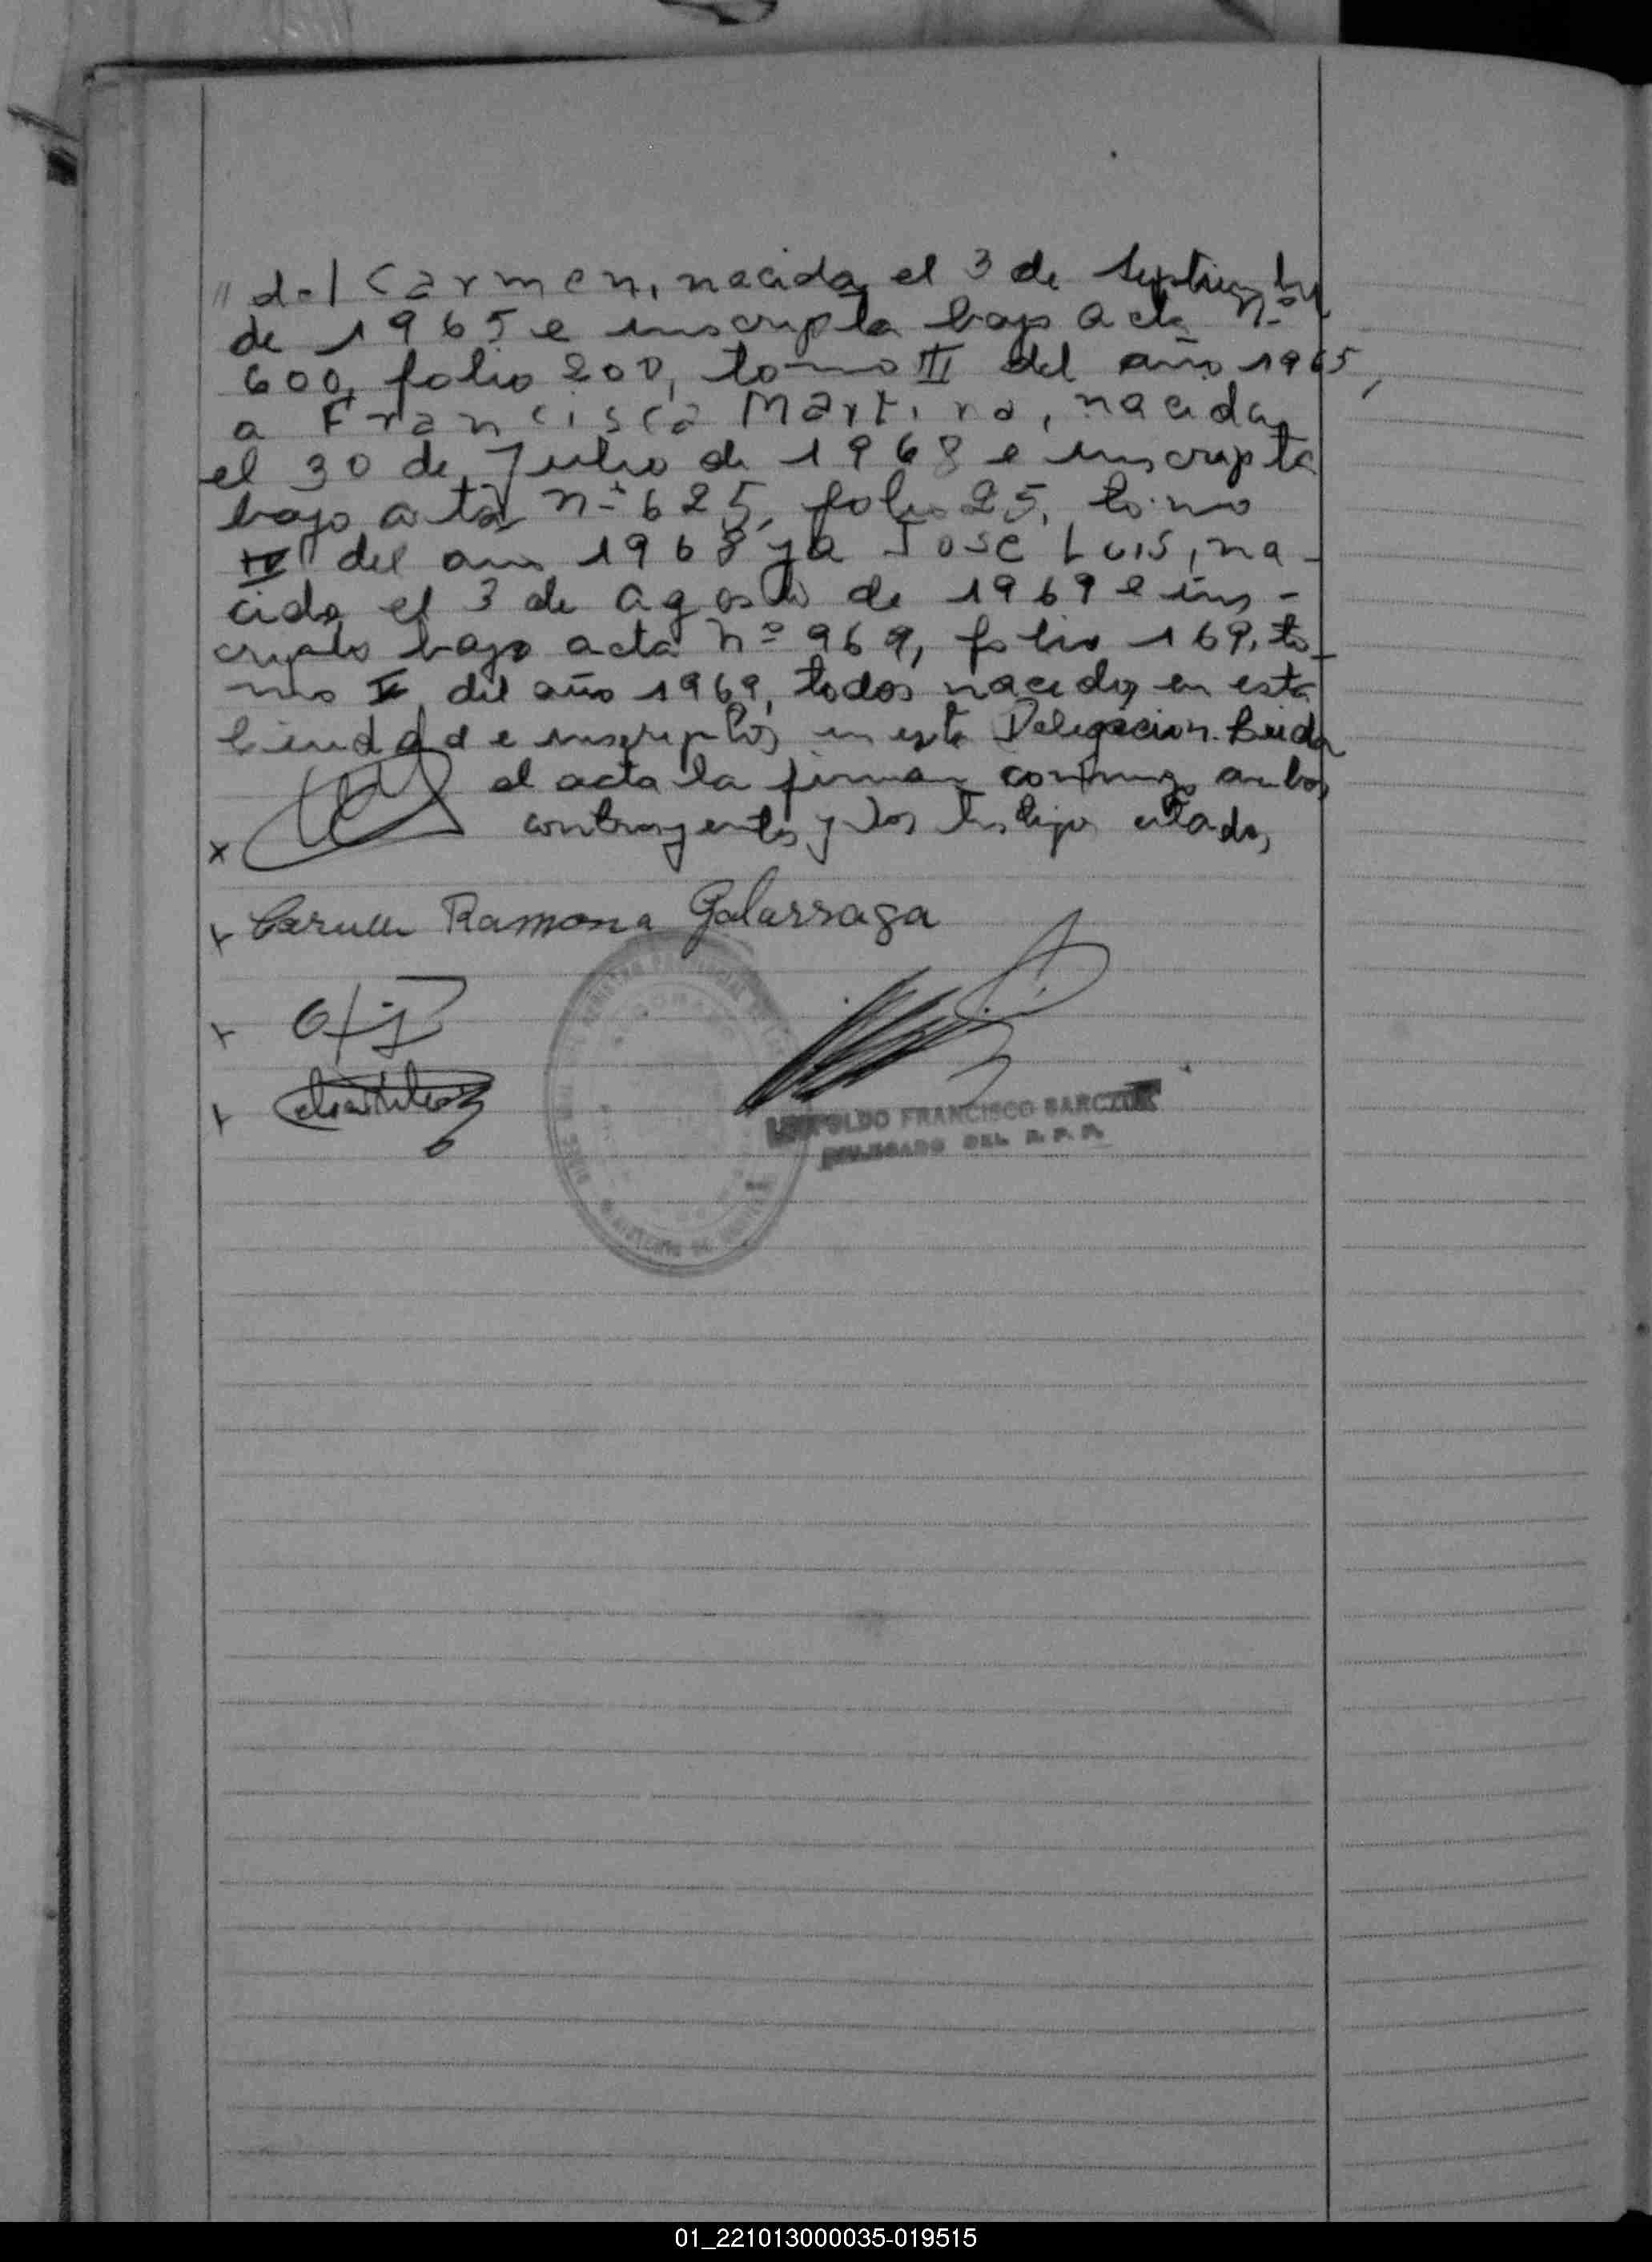 // del Carmen, nacida el 3 de Septiembre
de 1965 e inscripta bajo acta nº
600, folio 200, tomo III del año 1965,
a Francisca Martina, nacida
el 30 de Julio de 1968 e inscripta
bajo acta nº 625, folio 25, tomo
IV del año 1968 y a José Luis, na-
cido el 3 de agosto de 1969 e ins-
cripto bajo acta nº 969, folio 169, to-
mo del año 1969, todos nacidos en esta
Ciudad e inscriptos en esta Delegacion. Leida
el acta la firman conmigo ambos
contrayentes y los testigos citados
x
x Ramona Galarraga
x
x
LEOPOLDO FRANCISCO SARCZUK
DELEGADO DEL R. P. P.
01_221013000035-019515